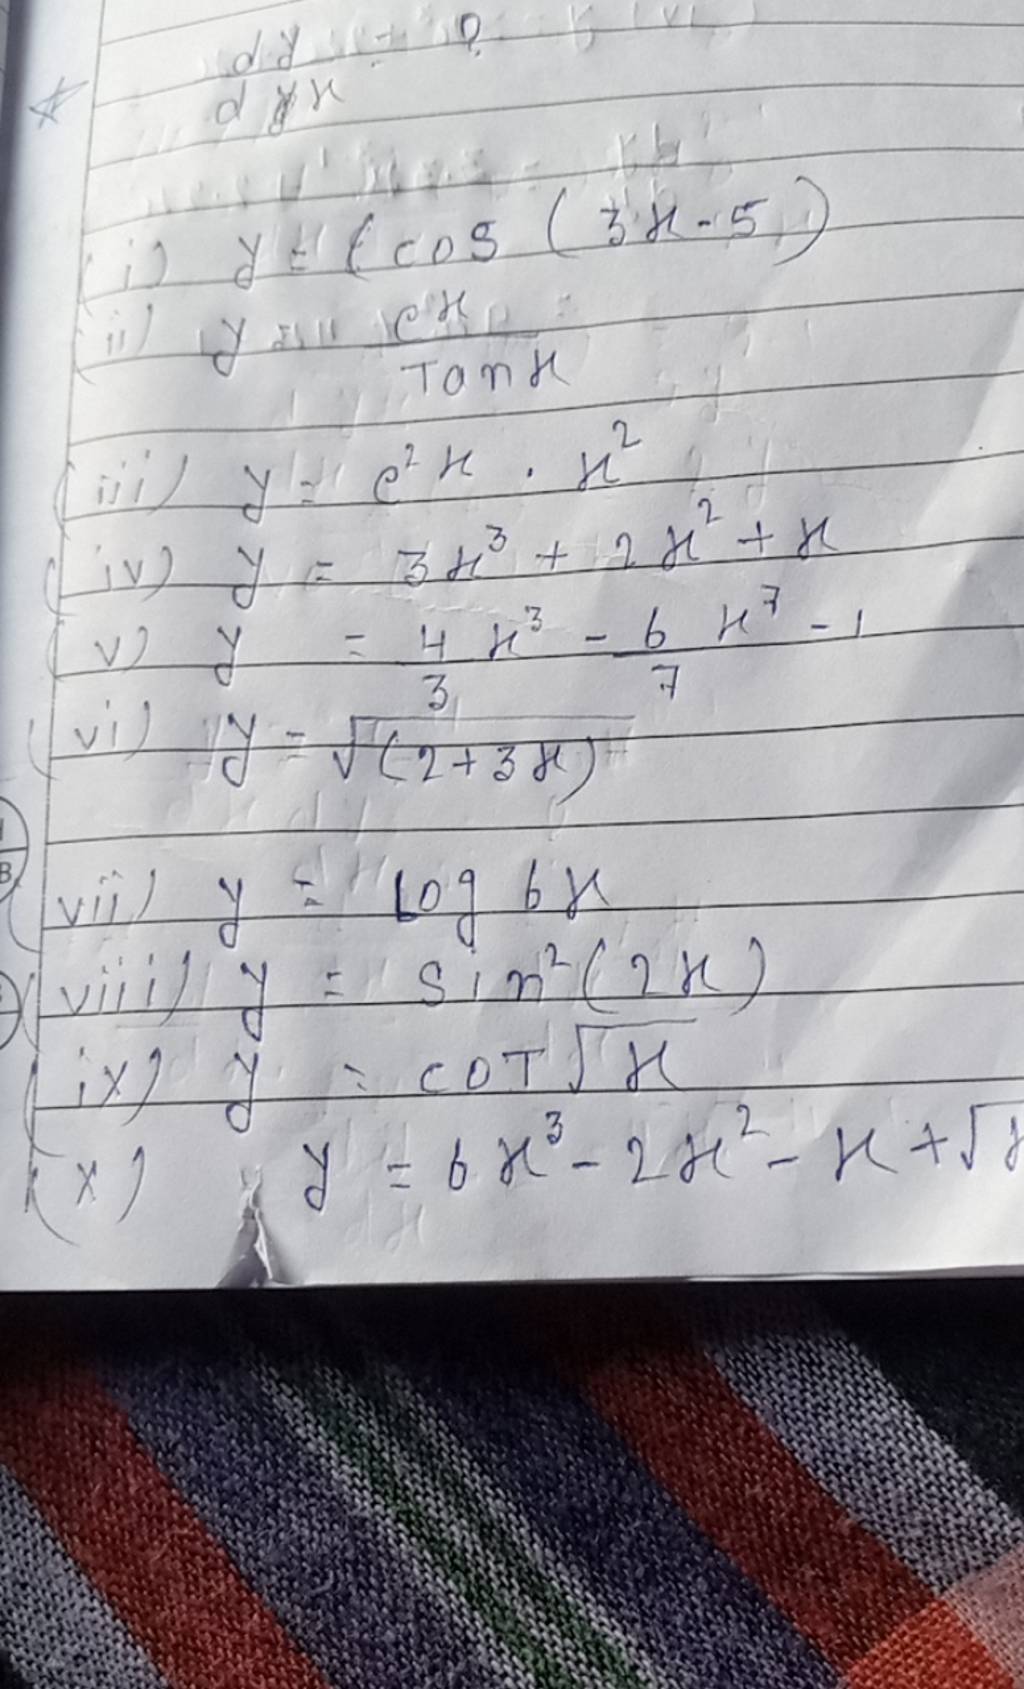 dy = ?
dx
(i) y = (cos (3x - 5)
(ii) y = e^x
Tan x
(iii) y = e^2x . x^2
(iv) y = 3x^3 + 2x^2 + x
(v) y = 4/3 x^3 - 6/7 x^7 - 1
(vi) y = √(2+3x)
(vii) y = Log 6x
(viii) y = Sin^2 (2x)
(ix) y = COT √x
(x) y = 6x^3 - 2x^2 - x + √x